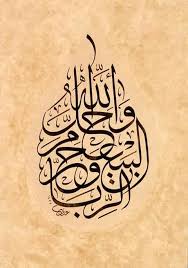 وأحل الله البيع وحرم الربا